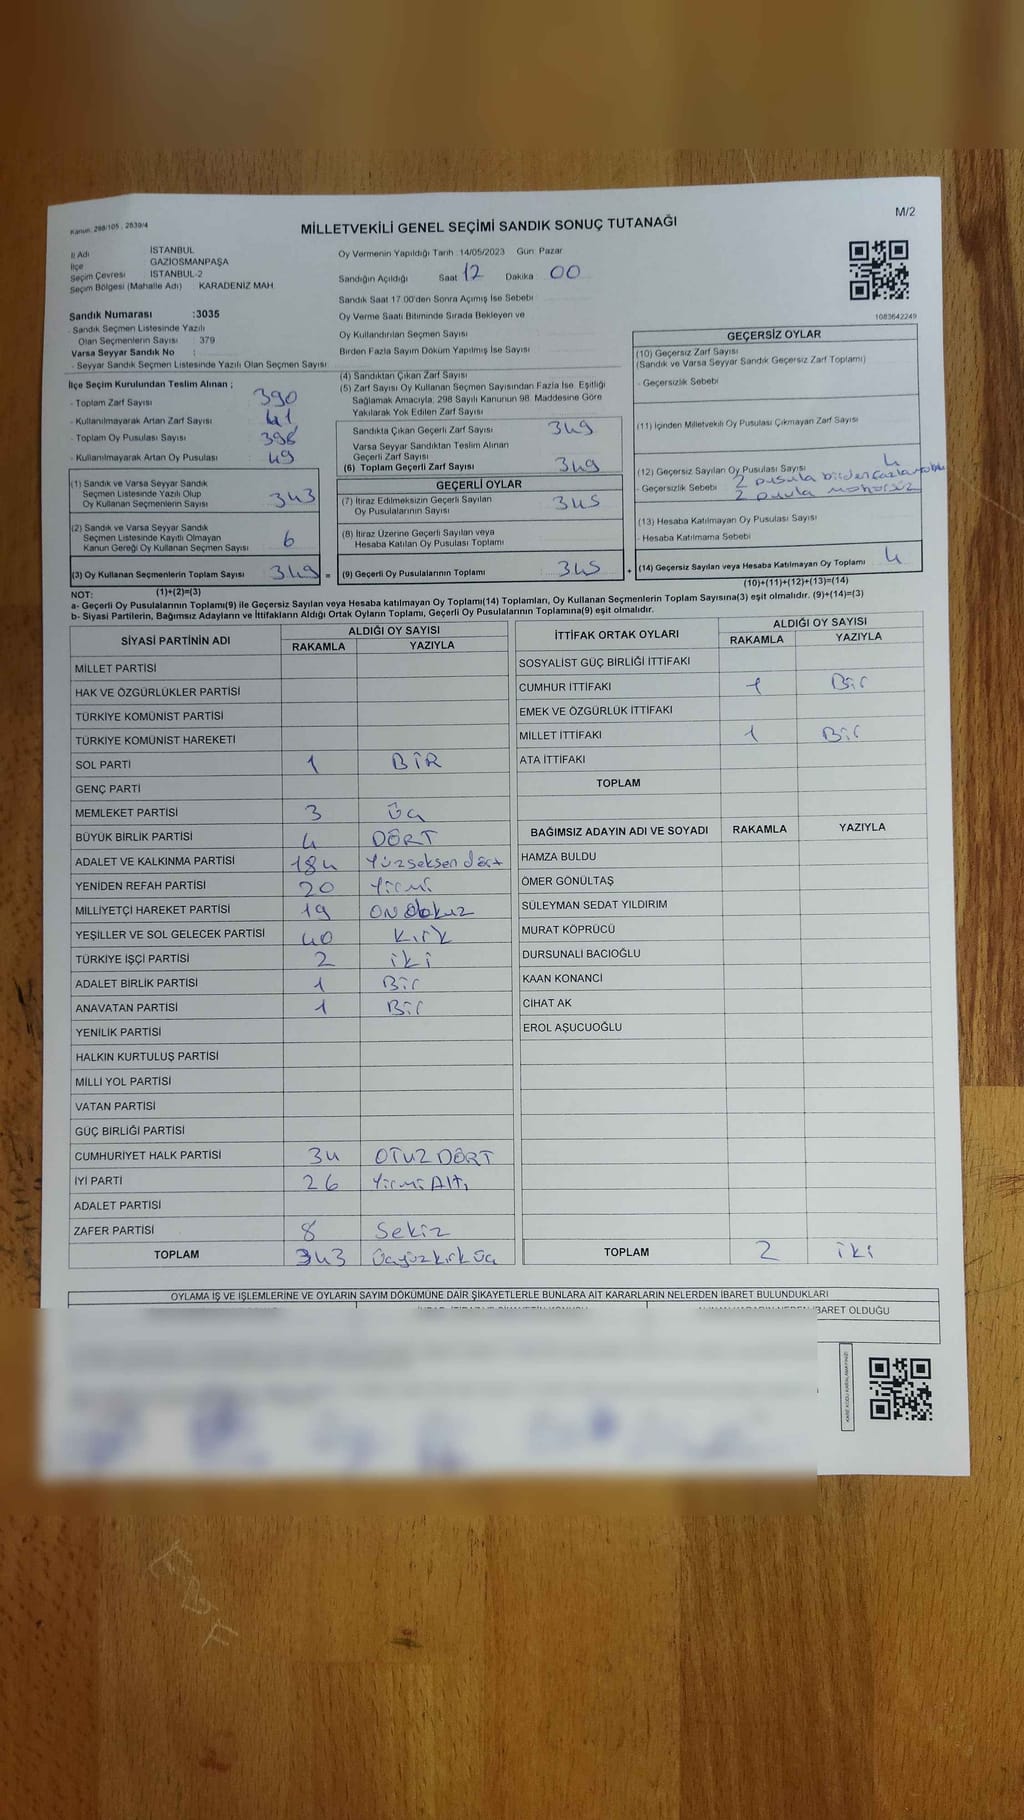 Kanun: 298/105 , 2839/4
M/2
MİLLETVEKİLİ GENEL SEÇİMİ SANDIK SONUÇ TUTANAĞI
İl Adı İSTANBUL
İlçe GAZİOSMANPAŞA
Seçim Çevresi İSTANBUL-2
Seçim Bölgesi (Mahalle Adı) KARADENİZ MAH.
Sandık Numarası :3035
- Sandık Seçmen Listesinde Yazılı
Olan Seçmenlerin Sayısı : 379
Varsa Seyyar Sandık No :
- Seyyar Sandık Seçmen Listesinde Yazılı Olan Seçmen Sayısı :
Oy Vermenin Yapıldığı Tarih :14/05/2023 Gün: Pazar
Sandığın Açıldığı Saat 12 Dakika 00
Sandık Saat 17.00'den Sonra Açımış İse Sebebi
Oy Verme Saati Bitiminde Sırada Bekleyen ve
Oy Kullandırılan Seçmen Sayısı
Birden Fazla Sayım Döküm Yapılmış İse Sayısı
1083642249
İlçe Seçim Kurulundan Teslim Alınan ;
- Toplam Zarf Sayısı 390
- Kullanılmayarak Artan Zarf Sayısı 41
- Toplam Oy Pusulası Sayısı 398
- Kullanılmayarak Artan Oy Pusulası 49
(1) Sandık ve Varsa Seyyar Sandık
Seçmen Listesinde Yazılı Olup
Oy Kullanan Seçmenlerin Sayısı 343
(2) Sandık ve Varsa Seyyar Sandık
Seçmen Listesinde Kayıtlı Olmayan
Kanun Gereği Oy Kullanan Seçmen Sayısı 6
(3) Oy Kullanan Seçmenlerin Toplam Sayısı 349 =
(1)+(2)=(3)
(4) Sandıktan Çıkan Zarf Sayısı
(5) Zarf Sayısı Oy Kullanan Seçmen Sayısından Fazla İse, Eşitliği
Sağlamak Amacıyla, 298 Sayılı Kanunun 98. Maddesine Göre
Yakılarak Yok Edilen Zarf Sayısı
Sandıkta Çıkan Geçerli Zarf Sayısı 349
Varsa Seyyar Sandıktan Teslim Alınan
Geçerli Zarf Sayısı
(6) Toplam Geçerli Zarf Sayısı 349
GEÇERLİ OYLAR
(7) İtiraz Edilmeksizin Geçerli Sayılan
Oy Pusulalarının Sayısı 345
(8) İtiraz Üzerine Geçerli Sayılan veya
Hesaba Katılan Oy Pusulası Toplamı
(9) Geçerli Oy Pusulalarının Toplamı 345 +
GEÇERSİZ OYLAR
(10) Geçersiz Zarf Sayısı
(Sandık ve Varsa Seyyar Sandık Geçersiz Zarf Toplamı)
- Geçersizlik Sebebi
(11) İçinden Milletvekili Oy Pusulası Çıkmayan Zarf Sayısı
(12) Geçersiz Sayılan Oy Pusulası Sayısı 4
- Geçersizlik Sebebi 2 pusula birden fazla
2 pusula mühürsüz
(13) Hesaba Katılmayan Oy Pusulası Sayısı
- Hesaba Katılmama Sebebi
(14) Geçersiz Sayılan veya Hesaba Katılmayan Oy Toplamı 4
(10)+(11)+(12)+(13)=(14)
NOT:
a- Geçerli Oy Pusulalarının Toplamı(9) ile Geçersiz Sayılan veya Hesaba katılmayan Oy Toplamı(14) Toplamları, Oy Kullanan Seçmenlerin Toplam Sayısına(3) eşit olmalıdır. (9)+(14)=(3)
b- Siyasi Partilerin, Bağımsız Adayların ve İttifakların Aldığı Ortak Oyların Toplamı, Geçerli Oy Pusulalarının Toplamına(9) eşit olmalıdır.
SİYASİ PARTİNİN ADI ALDIĞI OY SAYISI
RAKAMLA YAZIYLA
MİLLET PARTİSİ
HAK VE ÖZGÜRLÜKLER PARTİSİ
TÜRKİYE KOMÜNİST PARTİSİ
TÜRKİYE KOMÜNİST HAREKETİ
SOL PARTİ 1 BİR
GENÇ PARTİ
MEMLEKET PARTİSİ 3 Üç
BÜYÜK BİRLİK PARTİSİ 4 DÖRT
ADALET VE KALKINMA PARTİSİ 184 Yüzseksen dört
YENİDEN REFAH PARTİSİ 20 Yirmi
MİLLİYETÇİ HAREKET PARTİSİ 19 ON dokuz
YEŞİLLER VE SOL GELECEK PARTİSİ 40 Kırk
TÜRKİYE İŞÇİ PARTİSİ 2 iki
ADALET BİRLİK PARTİSİ 1 Bir
ANAVATAN PARTİSİ 1 Bir
YENİLİK PARTİSİ
HALKIN KURTULUŞ PARTİSİ
MİLLİ YOL PARTİSİ
VATAN PARTİSİ
GÜÇ BİRLİĞİ PARTİSİ
CUMHURİYET HALK PARTİSİ 34 OTUZ DÖRT
İYİ PARTİ 26 Yirmi Altı
ADALET PARTİSİ
ZAFER PARTİSİ 8 Sekiz
TOPLAM 343 Üçyüzkırk üç
İTTİFAK ORTAK OYLARI ALDIĞI OY SAYISI
RAKAMLA YAZIYLA
SOSYALİST GÜÇ BİRLİĞİ İTTİFAKI
CUMHUR İTTİFAKI 1 Bir
EMEK VE ÖZGÜRLÜK İTTİFAKI
MİLLET İTTİFAKI 1 Bir
ATA İTTİFAKI
TOPLAM
BAĞIMSIZ ADAYIN ADI VE SOYADI RAKAMLA YAZIYLA
HAMZA BULDU
ÖMER GÖNÜLTAŞ
SÜLEYMAN SEDAT YILDIRIM
MURAT KÖPRÜCÜ
DURSUNALİ BACIOĞLU
KAAN KONANCİ
CİHAT AK
EROL AŞUCUOĞLU
TOPLAM 2 iki
OYLAMA İŞ VE İŞLEMLERİNE VE OYLARIN SAYIM DÖKÜMÜNE DAİR ŞİKAYETLERLE BUNLARA AİT KARARLARIN NELERDEN İBARET BULUNDUKLARI
İBARET OLDUĞU
KARE KODU KARALAMAYINIZ!
EDF